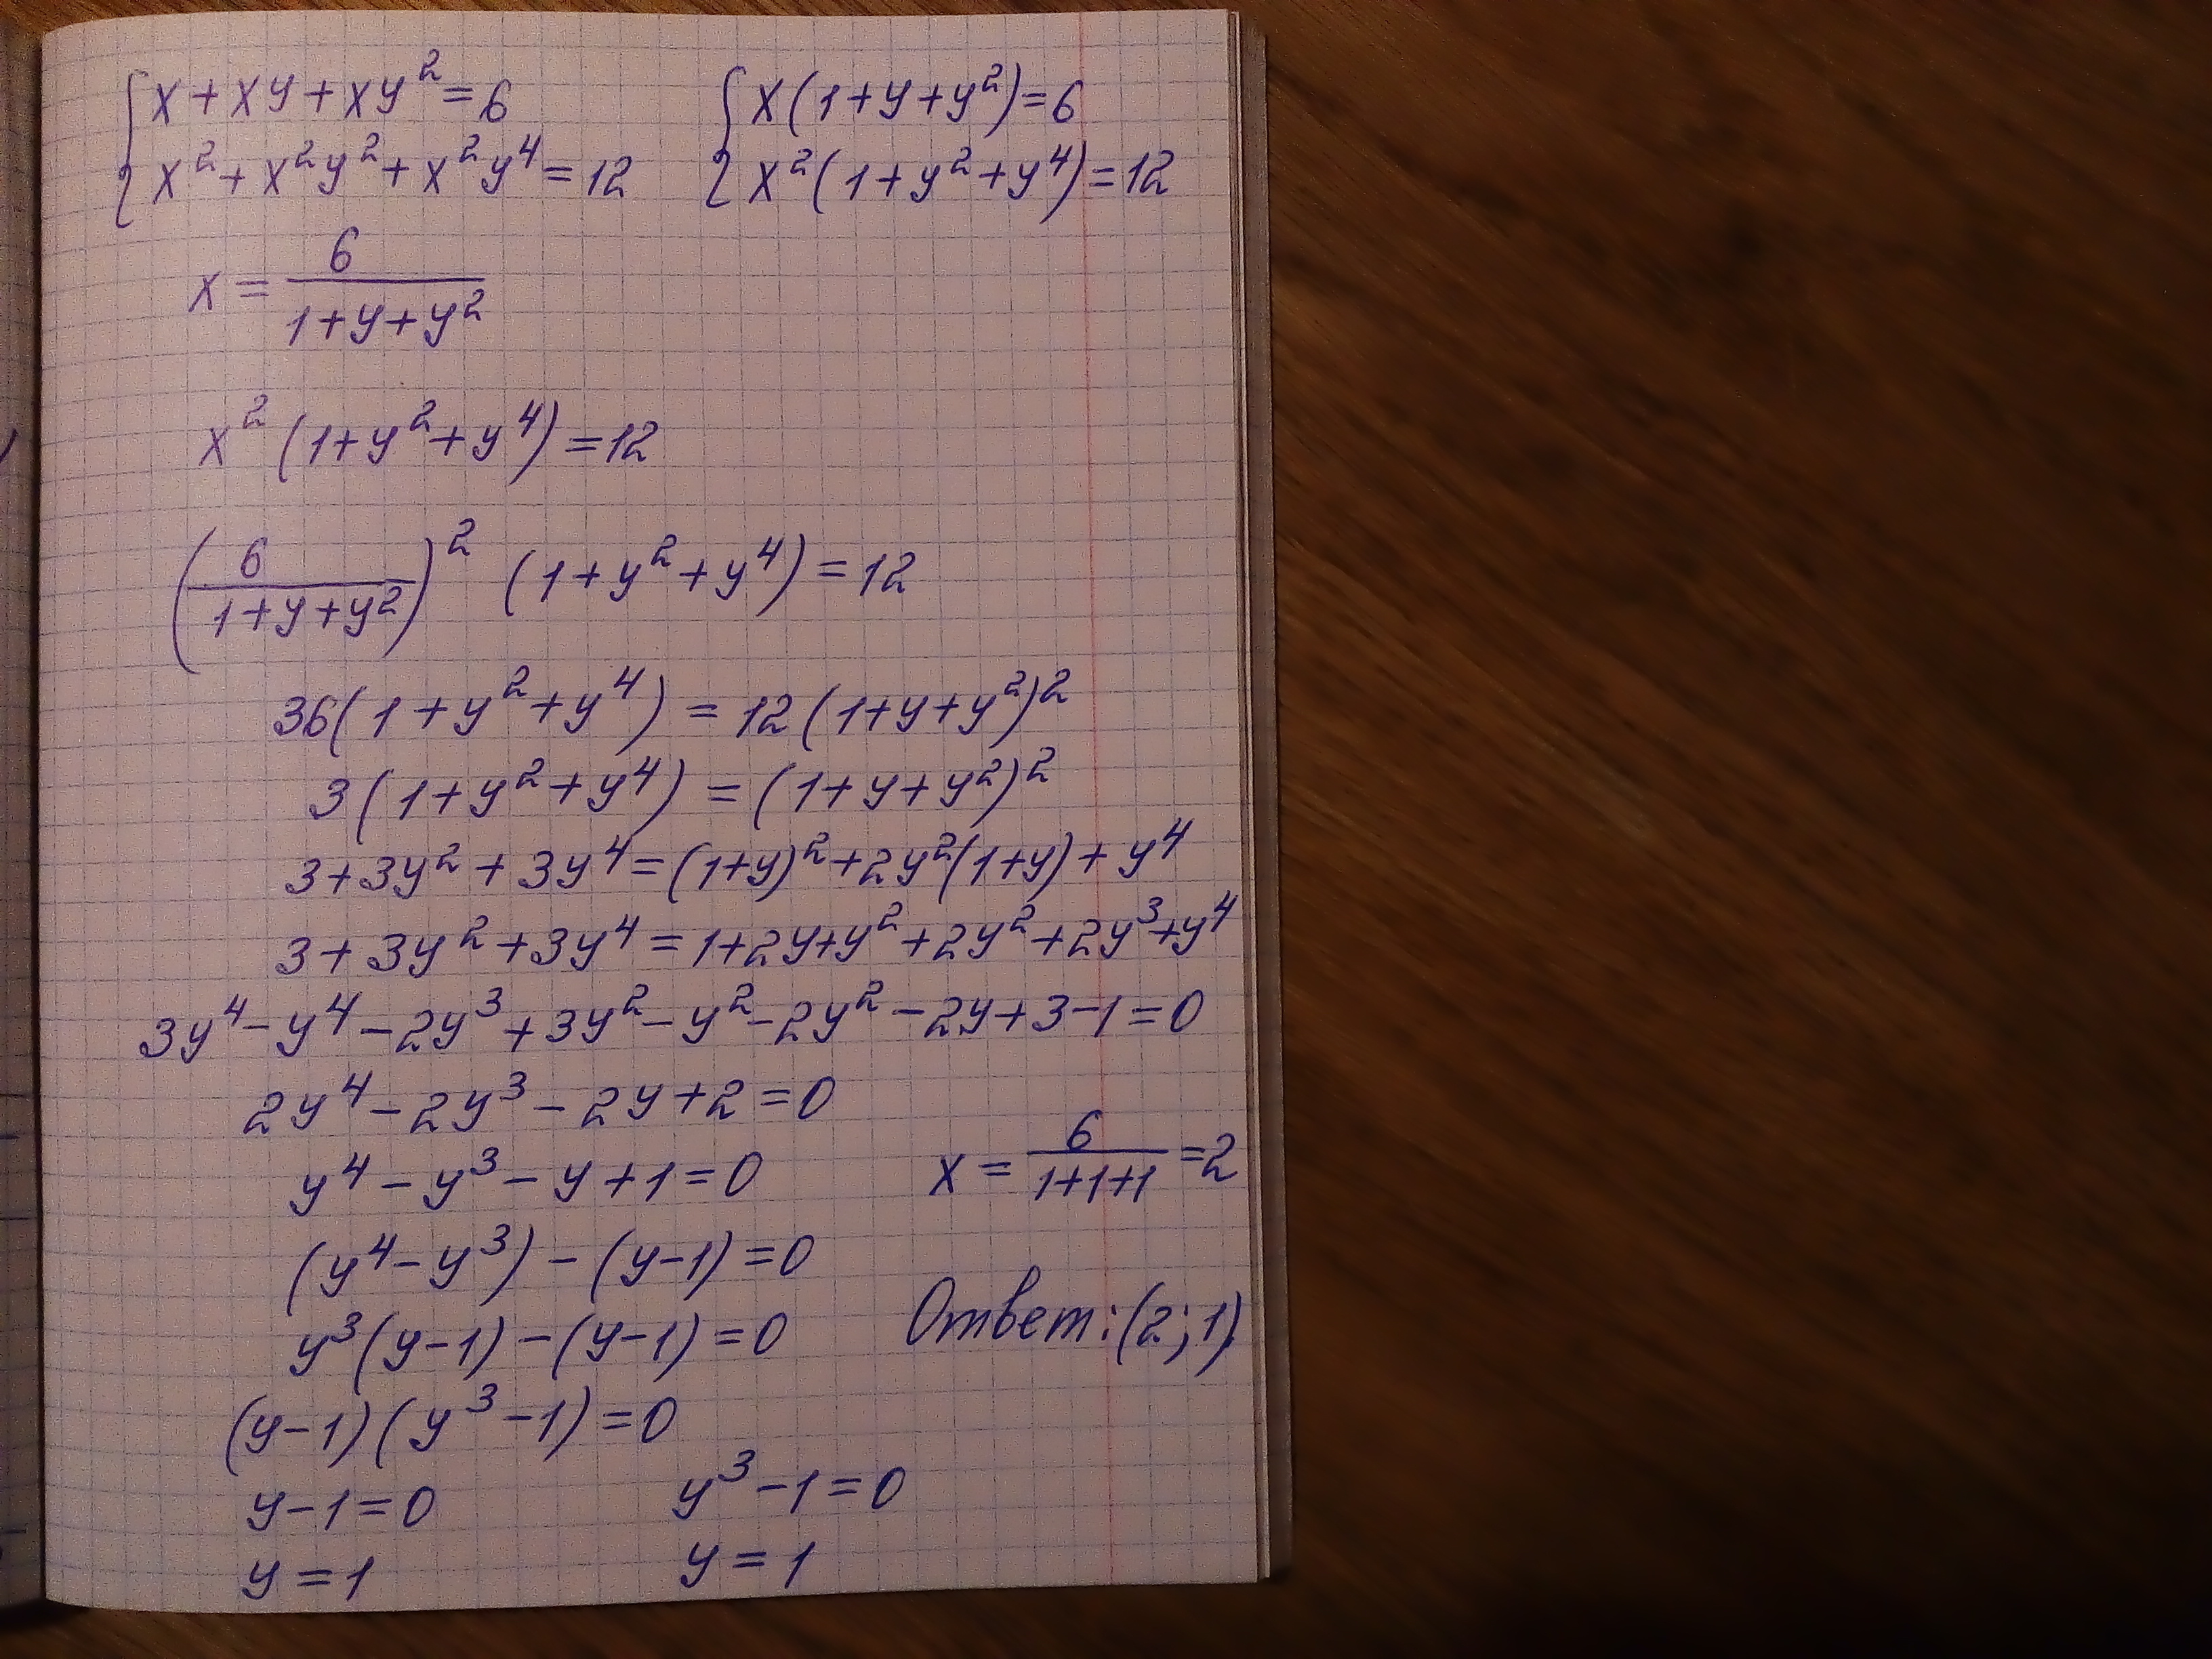 { x + xy + xy² = 6
{ x² + x²y² + x²y⁴ = 12
{ x(1+y+y²)=6
{ x²(1+y²+y⁴)=12
x = 6/(1+y+y²)
x²(1+y²+y⁴)=12
(6/(1+y+y²))² (1+y²+y⁴)=12
36(1+y²+y⁴) = 12(1+y+y²)²
3(1+y²+y⁴) = (1+y+y²)²
3+3y²+3y⁴=(1+y)²+2y²(1+y)+y⁴
3+3y²+3y⁴=1+2y+y²+2y²+2y³+y⁴
3y⁴-y⁴-2y³+3y²-y²-2y²-2y+3-1=0
2y⁴-2y³-2y+2=0
y⁴-y³-y+1=0
(y⁴-y³)-(y-1)=0
y³(y-1)-(y-1)=0
(y-1)(y³-1)=0
y-1=0 y³-1=0
y=1 y=1
x = 6/(1+1+1) =2
Ответ: (2;1)